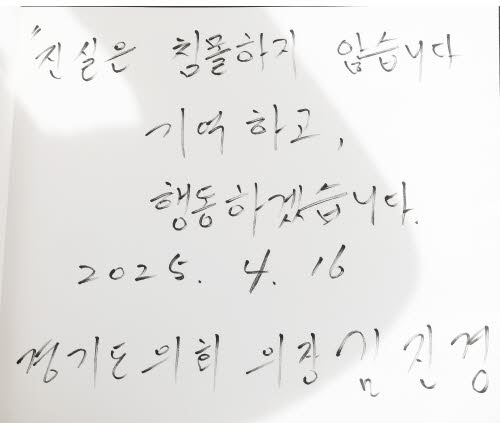 "진실은 침몰하지 않습니다
기억하고,
행동하겠습니다.
2025. 4. 16
경기도의회 의장 김진경